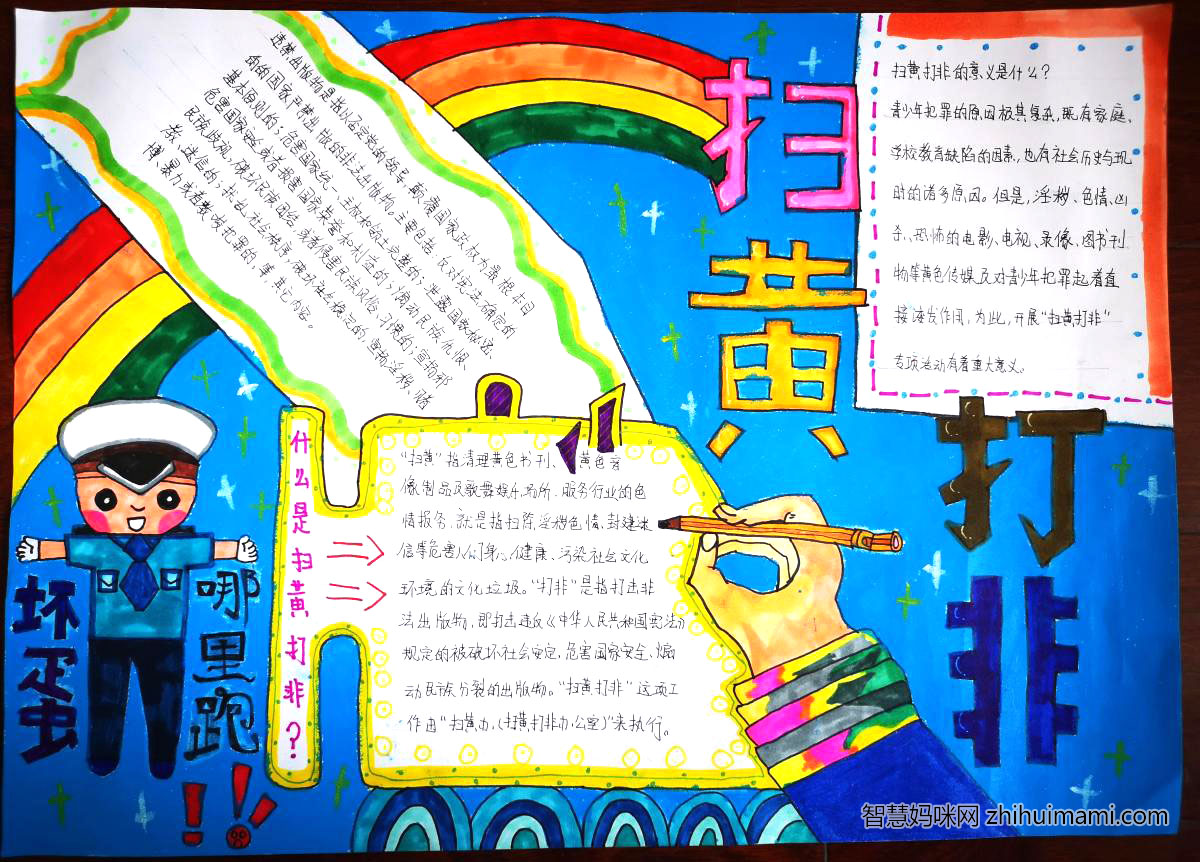 扫黄打非
违禁出版物是指以否定党的领导、颠覆国家政权为最根本目
的的国家严禁出版的非法出版物。主要包括反对宪法确定的
基本原则的；危害国家统一、主权和领土完整的；泄露国家秘密、
危害国家安全或者损害国家荣誉和利益的；煽动民族仇恨、
民族歧视，破坏民族团结，或者侵害民族风俗、习惯的；宣扬邪
教、迷信的；扰乱社会秩序，破坏社会稳定的，宣扬淫秽、赌
博、暴力或者教唆犯罪的，等其它内容。
扫黄打非的意义是什么？
青少年犯罪的原因极其复杂，既有家庭、
学校教育缺陷的因素，也有社会历史与现
时的诸多原因。但是，淫秽、色情、凶
杀、恐怖的电影、电视、录像、图书刊
物等黄色传媒及对青少年犯罪起着直
接诱发作用，为此，开展“扫黄打非”
专项活动有着重大意义。
什么是扫黄打非？
“扫黄”指清理黄色书刊、黄色音
像制品及歌舞娱乐场所、服务行业的色
情报务，就是指扫除淫秽色情、封建迷
信等危害人们身心健康、污染社会文化
环境的文化垃圾。“打非”是指打击非
法出版物，即打击违反《中华人民共和国宪法》
规定的被破坏社会安定，危害国家安全、煽
动民族分裂的出版物。“扫黄打非”这项工
作由“扫黄办，（扫黄打非办公室）”来执行。
坏蛋
哪里跑
!!!
智慧妈咪网 zhihuimami.com